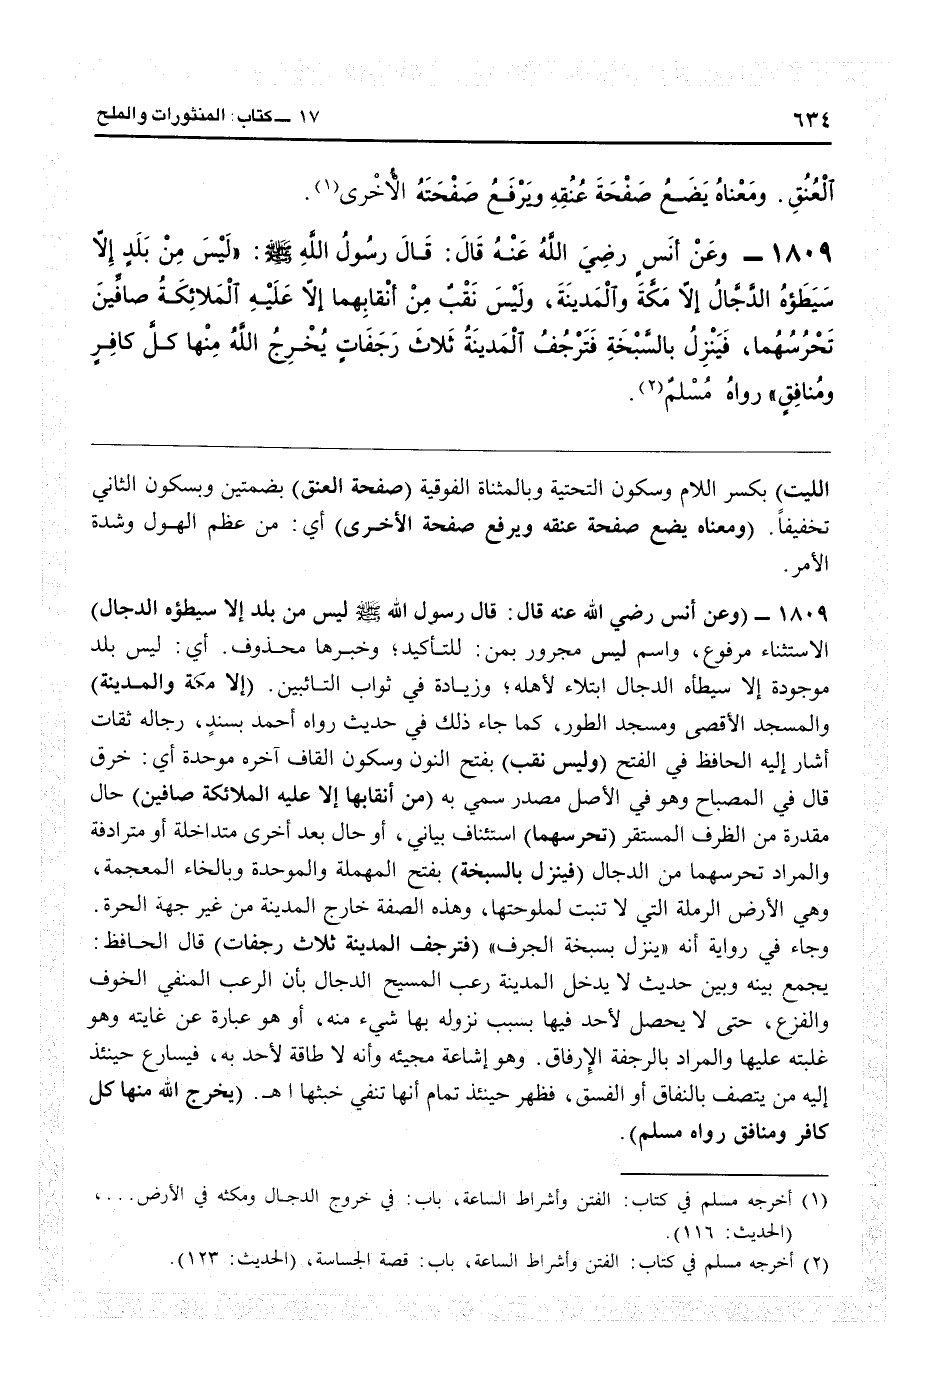 ٦٣٤
١٧ ــ كتاب: المنثورات والملح
ٱلْعُنُقِ. ومَعْناهُ يَضَعُ صَفْحَةَ عُنُقِهِ ويَرْفَعُ صَفْحَتَهُ الأُخْرى(١).
١٨٠٩ ــ وعَنْ أنَسٍ رضِيَ اللَّهُ عَنْهُ قَالَ: قَالَ رسُولُ اللَّهِ ﷺ: «لَيْسَ مِنْ بَلَدٍ إلاَّ
سَيَطَؤهُ الدَّجَّالُ إلاَّ مَكَّةَ وٱلْمَدينَةَ، ولَيْسَ نَقْبٌ مِنْ أنْقابِهما إلاَّ عَلَيْهِ ٱلْمَلائِكَةُ صافِّينَ
تَحْرُسُهُما، فَيَنْزِلُ بالسَّبْخَةِ فَتَرْجُفُ ٱلْمَدينَةُ ثَلاثَ رَجَفَاتٍ يُخْرِجُ اللَّهُ مِنْها كلَّ كافِرٍ
ومُنافِقٍ» رواهُ مُسْلمٌ(٢).
الليت) بكسر اللام وسكون التحتية وبالمثناة الفوقية (صفحة العنق) بضمتين وبسكون الثاني
تخفيفاً. (ومعناه يضع صفحة عنقه ويرفع صفحة الأخرى) أي: من عظم الهول وشدة
الأمر.
١٨٠٩ ــ (وعن أنس رضي الله عنه قال: قال رسول الله ﷺ ليس من بلد إلا سيطؤه الدجال)
الاستثناء مرفوع، واسم ليس مجرور بمن: للتأكيد؛ وخبرها محذوف. أي: ليس بلد
موجودة إلا سيطأه الدجال ابتلاء لأهله؛ وزيادة في ثواب التائبين. (إلا مكة والمدينة)
والمسجد الأقصى ومسجد الطور، كما جاء ذلك في حديث رواه أحمد بسندٍ، رجاله ثقات
أشار إليه الحافظ في الفتح (وليس نقب) بفتح النون وسكون القاف آخره موحدة أي: خرق
قال في المصباح وهو في الأصل مصدر سمي به (من أنقابها إلا عليه الملائكة صافين) حال
مقدرة من الظرف المستقر (تحرسهما) استئناف بياني، أو حال بعد أخرى متداخلة أو مترادفة
والمراد تحرسهما من الدجال (فينزل بالسبخة) بفتح المهملة والموحدة وبالخاء المعجمة،
وهي الأرض الرملة التي لا تنبت لملوحتها، وهذه الصفة خارج المدينة من غير جهة الحرة.
وجاء في رواية أنه «ينزل بسبخة الجرف» (فترجف المدينة ثلاث رجفات) قال الحافظ:
يجمع بينه وبين حديث لا يدخل المدينة رعب المسيح الدجال بأن الرعب المنفي الخوف
والفزع، حتى لا يحصل لأحد فيها بسبب نزوله بها شيء منه، أو هو عبارة عن غايته وهو
غلبته عليها والمراد بالرجفة الإرفاق. وهو إشاعة مجيئه وأنه لا طاقة لأحد به، فيسارع حينئذ
إليه من يتصف بالنفاق أو الفسق، فظهر حينئذ تمام أنها تنفي خبثها ا هـ. (يخرج الله منها كل
كافر ومنافق رواه مسلم).
(١) أخرجه مسلم في كتاب: الفتن وأشراط الساعة، باب: في خروج الدجال ومكثه في الأرض...،
(الحديث: ١١٦).
(٢) أخرجه مسلم في كتاب: الفتن وأشراط الساعة، باب: قصة الجساسة، (الحديث: ١٢٣).